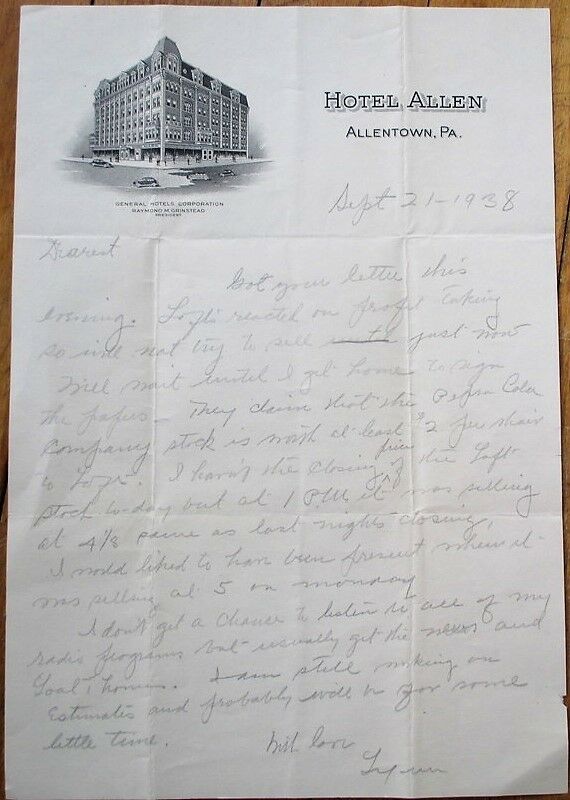 HOTEL ALLEN
ALLENTOWN, PA.
GENERAL HOTELS CORPORATION
RAYMOND M. GRINSTEAD
PRESIDENT
Sept 21-1938
Dearest
Got your letter this
evening. Loft's reacted on profit taking
so will not try to sell just now
Will wait until I get home to sign
the papers - They claim that the Pepsi Cola
Company stock is worth at least $2 per share
to Loft. I haven't the closing price of the Loft
stock to-day but at 1 P.M. it was selling
at 4 1/8 same as last nights closing,
I would liked to have been present when it
was selling at 5 on monday
I don't get a chance to listen to all of my
radio programs but usually get the news and
I am still working on
Estimates and probably will be for some
little time.
With love